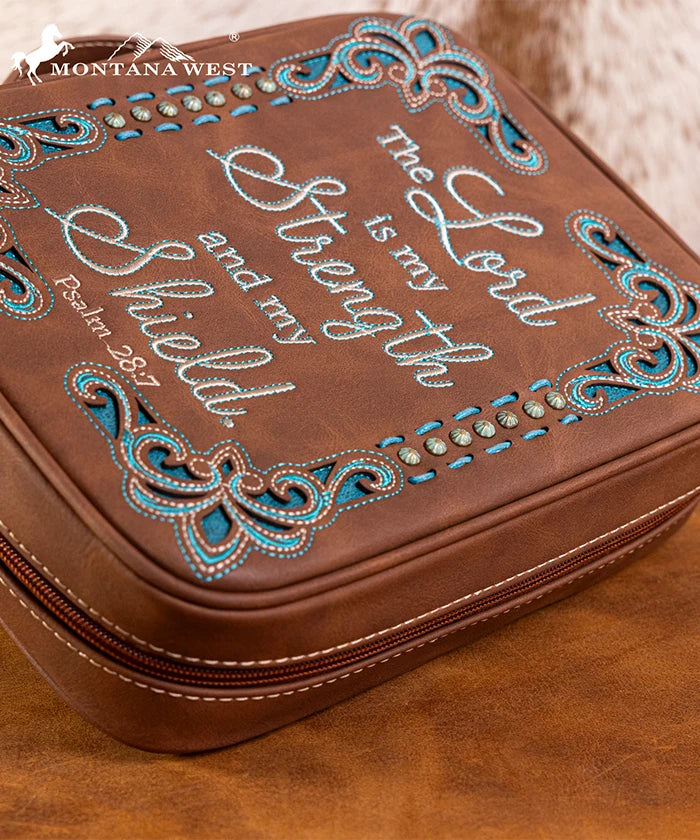 MONTANA WEST®
The Lord
is my
Strength
and my
Shield.
Psalm 28:7